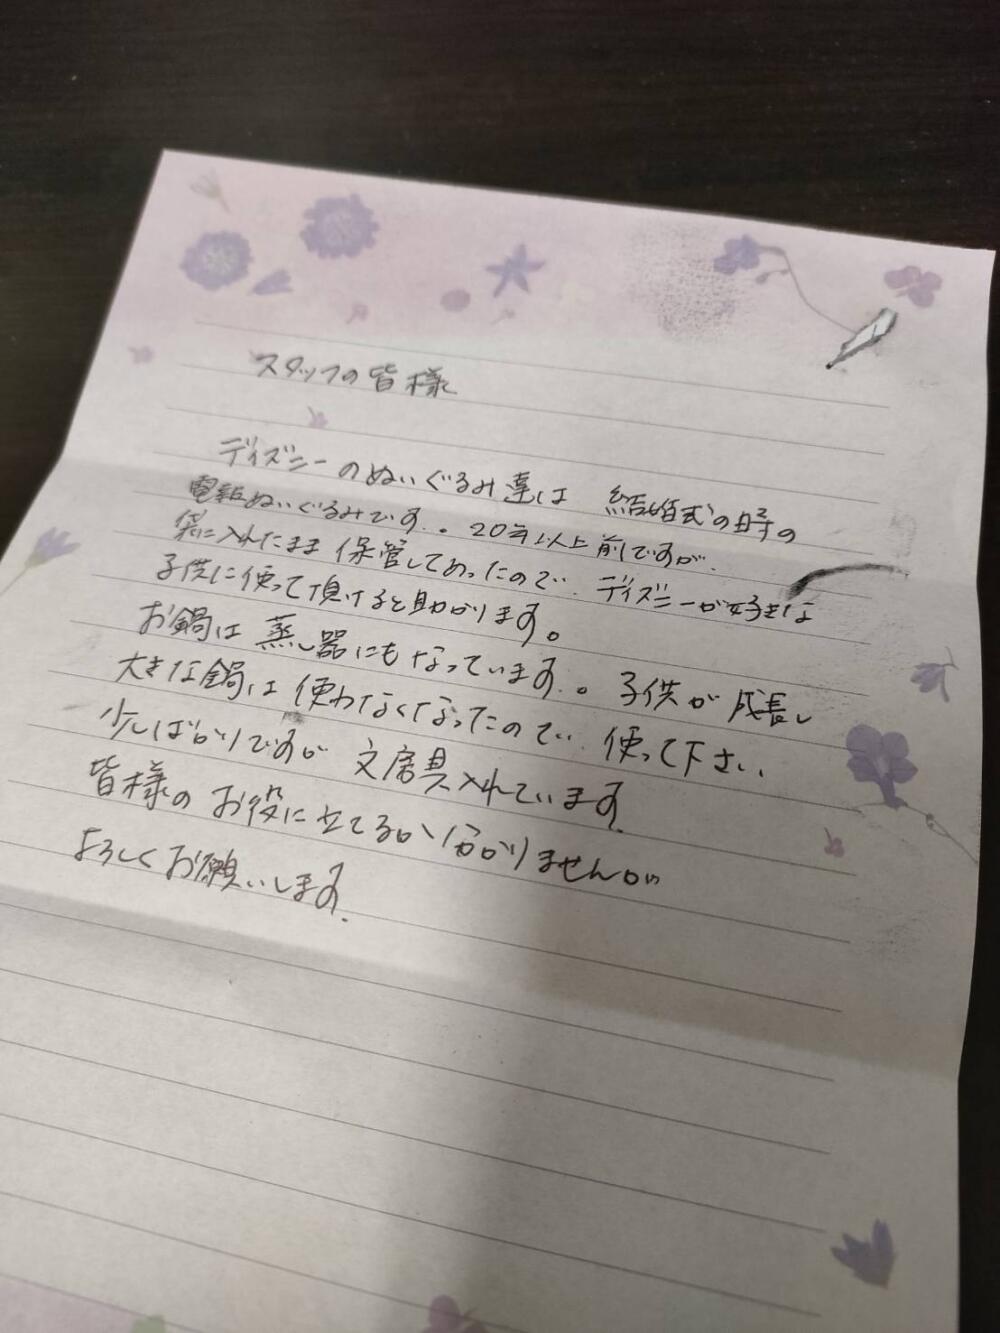 スタッフの皆様
ディズニーのぬいぐるみ達は 結婚式の時の
電報ぬいぐるみです。20年以上前ですが、
袋に入れたまま保管してあったので、ディズニーが好きな
子供に使って頂けると助かります。
お鍋は 蒸し器にもなっています。子供が成長し
大きな鍋は 使わなくなったので、使って下さい。
少しばかりですが 文房具入れています。
皆様のお役に立てるか分かりませんが
よろしくお願いします。